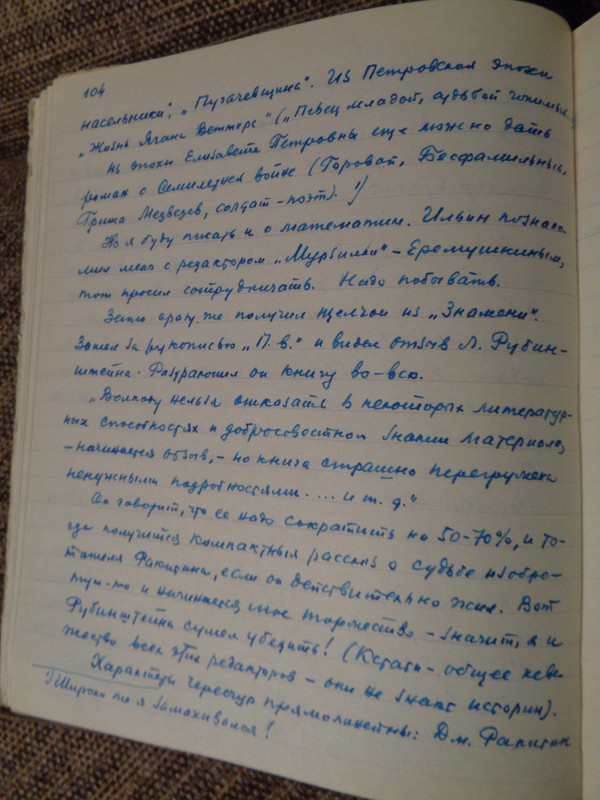 104
насельники", "Пугачевщина". Из Петровской эпохи
"Жизнь Ягана Веттера" ("Певец младой, судьбой гонимый").
Из эпохи Елизаветы Петровны еще можно дать
роман о Семилетней войне (Горовой, Бесфамильный,
Гриша Медведев, солдат-поэт). 1)
Но я буду писать и о математике. Ильин познако-
мил меня с редактором "Мурзилки" - Еремушкиным,
тот просил сотрудничать. Надо побывать.
Зато сразу же получил щелчок из "Знамени".
Зашел за рукописью "П. в." и видел отзыв Л. Рубин-
штейна. Раздраконил он книгу во-всю.
"Волкову нельзя отказать в некоторых литератур-
ных способностях и добросовестном знании материала,
- начинается отзыв, - но книга страшно перегружена
ненужными подробностями. ... и т. д."
Он говорит, что ее надо сократить на 50-70%, и то-
гда получится компактный рассказ о судьбе изобре-
тателя Ракитина, если он действительно жил. Вот
тут-то и начинается мое торжество - значит, я и
Рубинштейна сумел убедить! (Кстати - общее неве-
жество всех этих редакторов - они не знают истории).
Характеры чересчур прямолинейны: Дм. Ракитин
1) Широко то я замахивался!